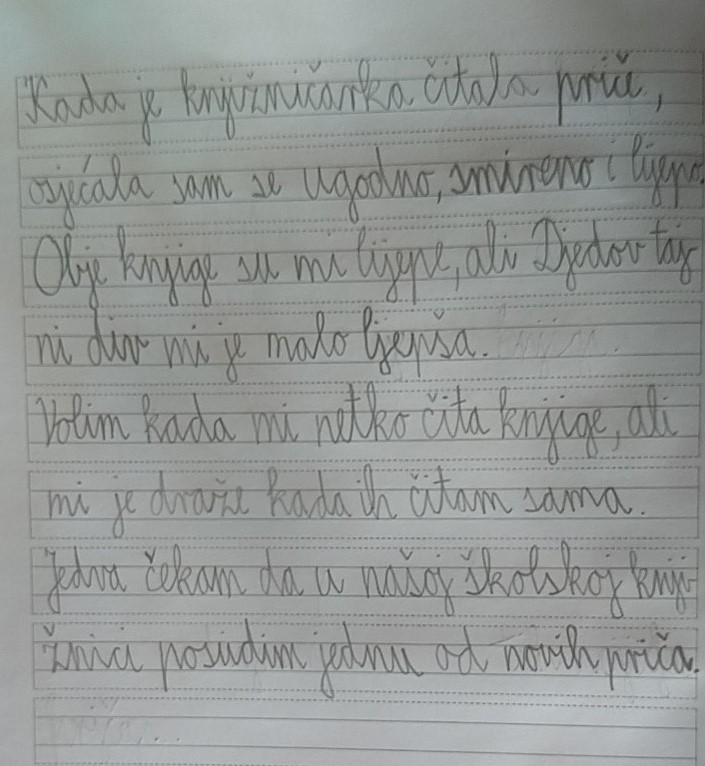 Kada je knjižničarka čitala priče,
osjećala sam se ugodno, smireno i lijepo.
Obje knjige su mi lijepe, ali Djedov taj
ni div mi je malo ljepša.
Volim kada mi netko čita knjige, ali
mi je draže kada ih čitam sama.
Jedva čekam da u našoj školskoj knji
žnici posudim jednu od novih priča.